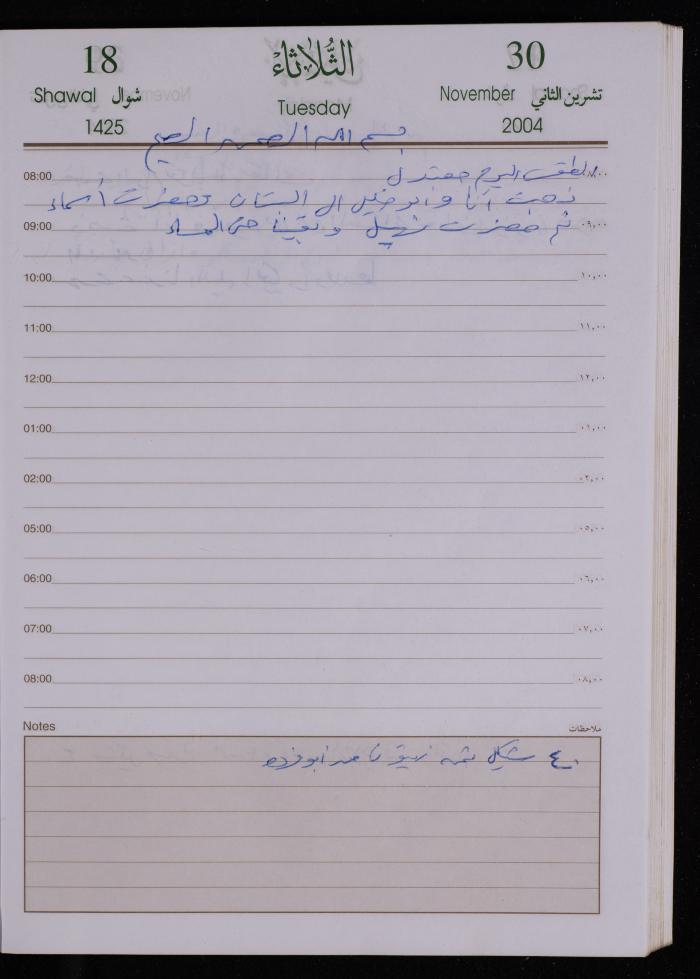 18 الثلاثاء 30
Shawal شوال Tuesday November تشرين الثاني
1425 2004
بسم الله الرحمن الرحيم
08:00 الطقس اليوم معتدل ٠٨,٠٠
ذهبت أنا و أبو خليل الى البستان وحضرت أسماء
09:00 ثم حضرت نهيل وبقينا حتى المساء ٠٩,٠٠
10:00 ١٠,٠٠
11:00 ١١,٠٠
12:00 ١٢,٠٠
01:00 ٠١,٠٠
02:00 ٠٢,٠٠
05:00 ٠٥,٠٠
06:00 ٠٦,٠٠
07:00 ٠٧,٠٠
08:00 ٠٨,٠٠
Notes ملاحظات
٤٠ شيكل ثمن زيتون من أبو فرده